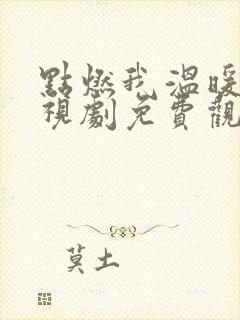 點燃我溫暖
視劇免費觀
莫土